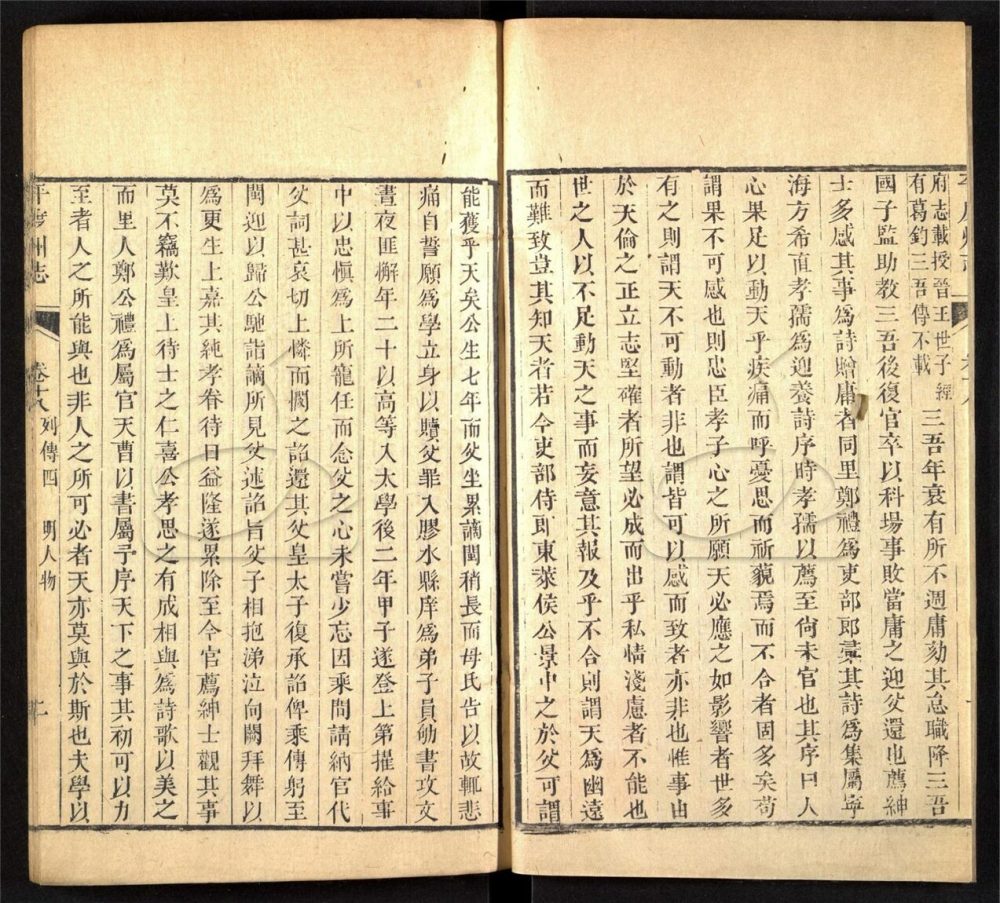 府志載授晉王世子經
有葛鈞三吾傳不載
三吾年衰有所不週庸劾其怠職降三吾
國子監助教三吾後復官卒以科場事敗當庸之迎父還也薦紳
士多感其事爲詩贈庸者同里鄭禮爲吏部郎彚其詩爲集屬寧
海方希直孝孺爲迎養詩序時孝孺以薦至尙未官也其序曰人
心果足以動天乎疾痛而呼憂思而祈藐焉而不合者固多矣苟
謂果不可感也則忠臣孝子心之所願天必應之如影響者世多
有之則謂天不可動者非也謂皆可以感而致者亦非也惟事由
於天倫之正立志堅確者所望必成而出乎私情淺慮者不能也
世之人以不足動天之事而妄意其報及乎不合則謂天爲幽遠
而難致豈其知天者若今吏部侍郎東萊侯公景中之於父可謂
能獲乎天矣公生七年而父坐累謫閩稍長而母氏告以故輒悲
痛自誓願爲學立身以贖父罪入膠水縣庠爲弟子員劬書攻文
晝夜匪懈年二十以高等入太學後二年甲子遂登上第擢給事
中以忠愼爲上所寵任而念父之心未嘗少忘因乘間請納官代
父詞甚哀切上憐而憫之詔還其父皇太子復承詔俾乘傳躬至
閩迎以歸公馳詣謫所見父述詔旨父子相抱涕泣向闕拜舞以
爲更生上嘉其純孝眷待日益隆遂累除至今官薦紳士觀其事
莫不竊歎皇上待士之仁喜公孝思之有成相與爲詩歌以美之
而里人鄭公禮爲屬官天曹以書屬予序天下之事其初可以力
至者人之所能與也非人之所可必者天亦莫與於斯也夫學以
平度州志
卷十八
列傳四
明人物